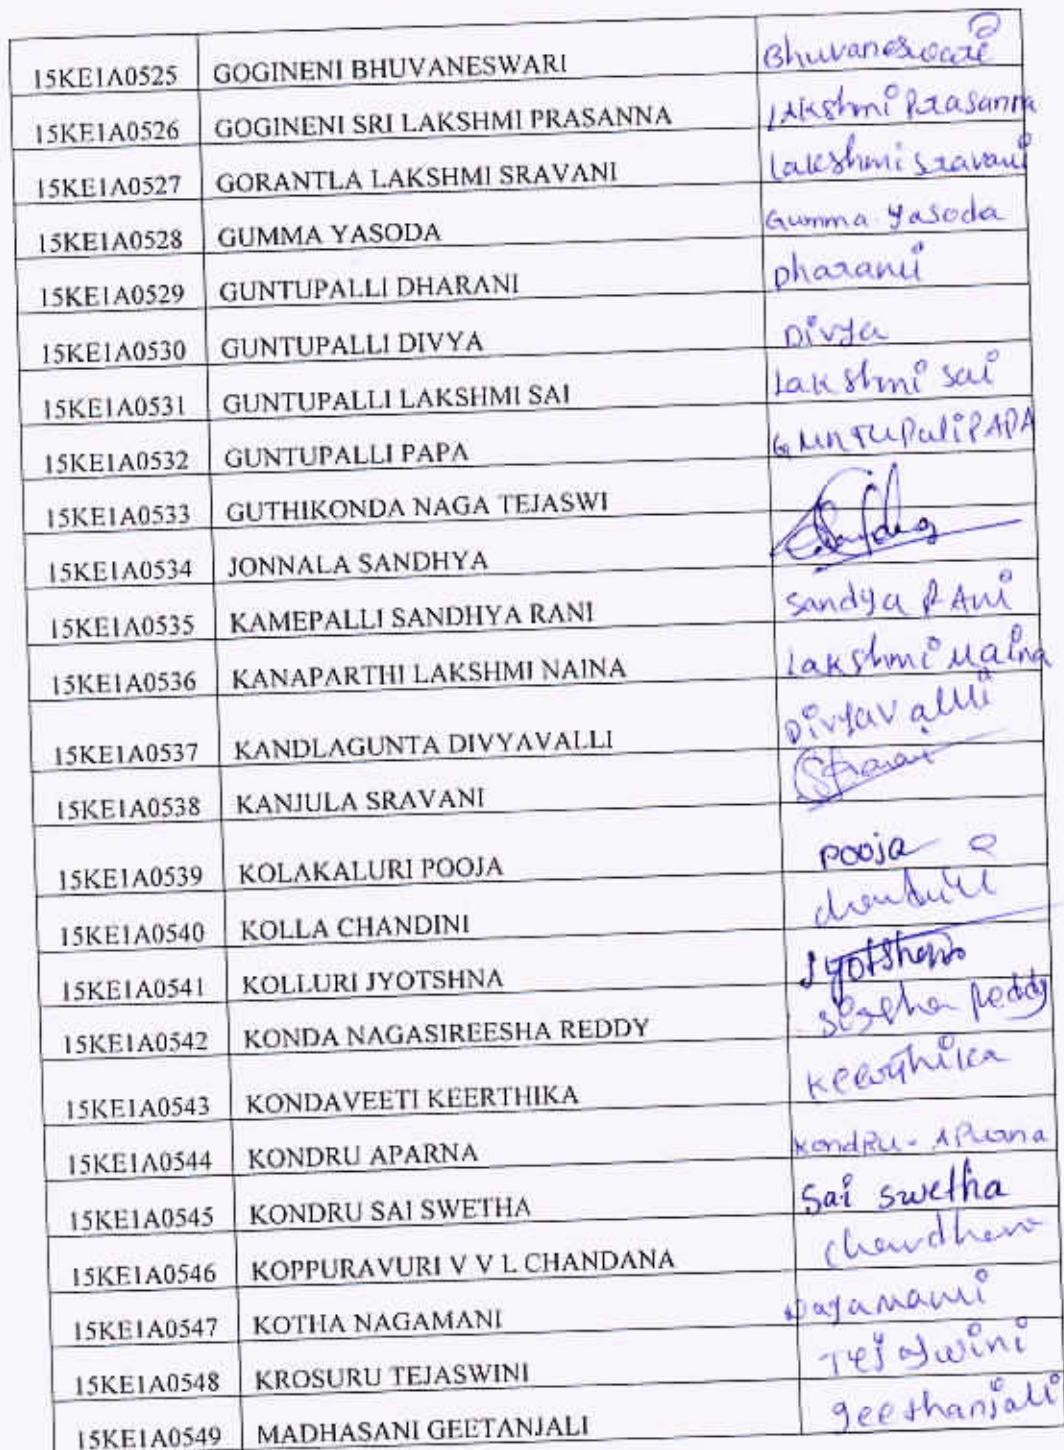 15KE1A0525 GOGINENI BHUVANESWARI Bhuvaneswari
15KE1A0526 GOGINENI SRI LAKSHMI PRASANNA Lakshmi Prasanna
15KE1A0527 GORANTLA LAKSHMI SRAVANI Lakshmi Sravani
15KE1A0528 GUMMA YASODA Gumma Yasoda
15KE1A0529 GUNTUPALLI DHARANI Dharani
15KE1A0530 GUNTUPALLI DIVYA Divya
15KE1A0531 GUNTUPALLI LAKSHMI SAI Lakshmi Sai
15KE1A0532 GUNTUPALLI PAPA GUNTUPaliPAPA
15KE1A0533 GUTHIKONDA NAGA TEJASWI
15KE1A0534 JONNALA SANDHYA
15KE1A0535 KAMEPALLI SANDHYA RANI Sandya RAni
15KE1A0536 KANAPARTHI LAKSHMI NAINA Lakshmi Naina
15KE1A0537 KANDLAGUNTA DIVYAVALLI Divyavalli
15KE1A0538 KANJULA SRAVANI
15KE1A0539 KOLAKALURI POOJA Pooja
15KE1A0540 KOLLA CHANDINI chandini
15KE1A0541 KOLLURI JYOTSHNA Jyotshna
15KE1A0542 KONDA NAGASIREESHA REDDY Reddy
15KE1A0543 KONDAVEETI KEERTHIKA Keerthika
15KE1A0544 KONDRU APARNA Kondru - APuana
15KE1A0545 KONDRU SAI SWETHA Sai swetha
15KE1A0546 KOPPURAVURI V V L CHANDANA Chandhana
15KE1A0547 KOTHA NAGAMANI Nagamani
15KE1A0548 KROSURU TEJASWINI Tejaswini
15KE1A0549 MADHASANI GEETANJALI geethanjali